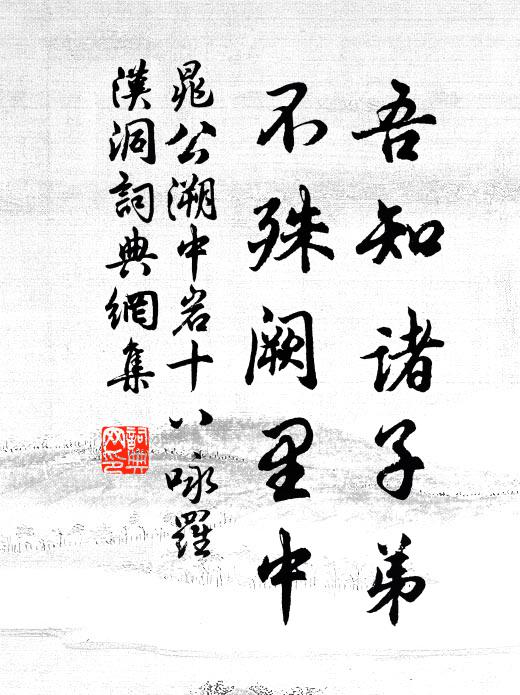 吾知诸子弟
不殊阙里中
晁公溯中岩十八咏罗
汉洞词典网集
詞典网印